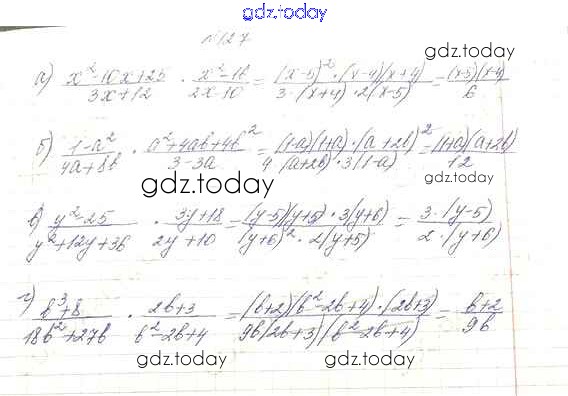 gdz.today
№127
gdz.today
а) x²-10x+25/3x+12 · x²-16/2x-10 = (x-5)²·(x-4)(x+4)/3·(x+4)·2(x-5) = (x-5)(x-4)/6
б) 1-a²/4a+8b · a²+4ab+4b²/3-3a = (1-a)(1+a)·(a+2b)²/4·(a+2b)·3(1-a) = (1+a)(a+2b)/12
gdz.today gdz.today
в) y²-25/y²+12y+36 · 3y+18/2y+10 = (y-5)(y+5)·3(y+6)/(y+6)²·2(y+5) = 3·(y-5)/2·(y+6)
gdz.today
г) b³+8/18b²+27b · 2b+3/b²-2b+4 = (b+2)(b²-2b+4)·(2b+3)/9b(2b+3)(b²-2b+4) = b+2/9b
gdz.today gdz.today